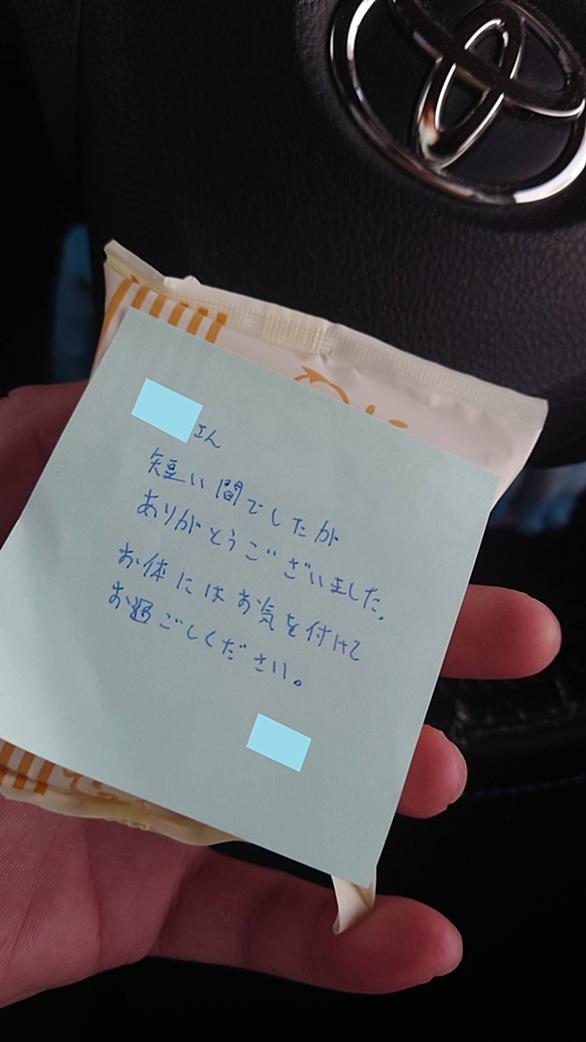 さん
短い間でしたが
ありがとうございました。
お体にはお気を付けて
お過ごしください。